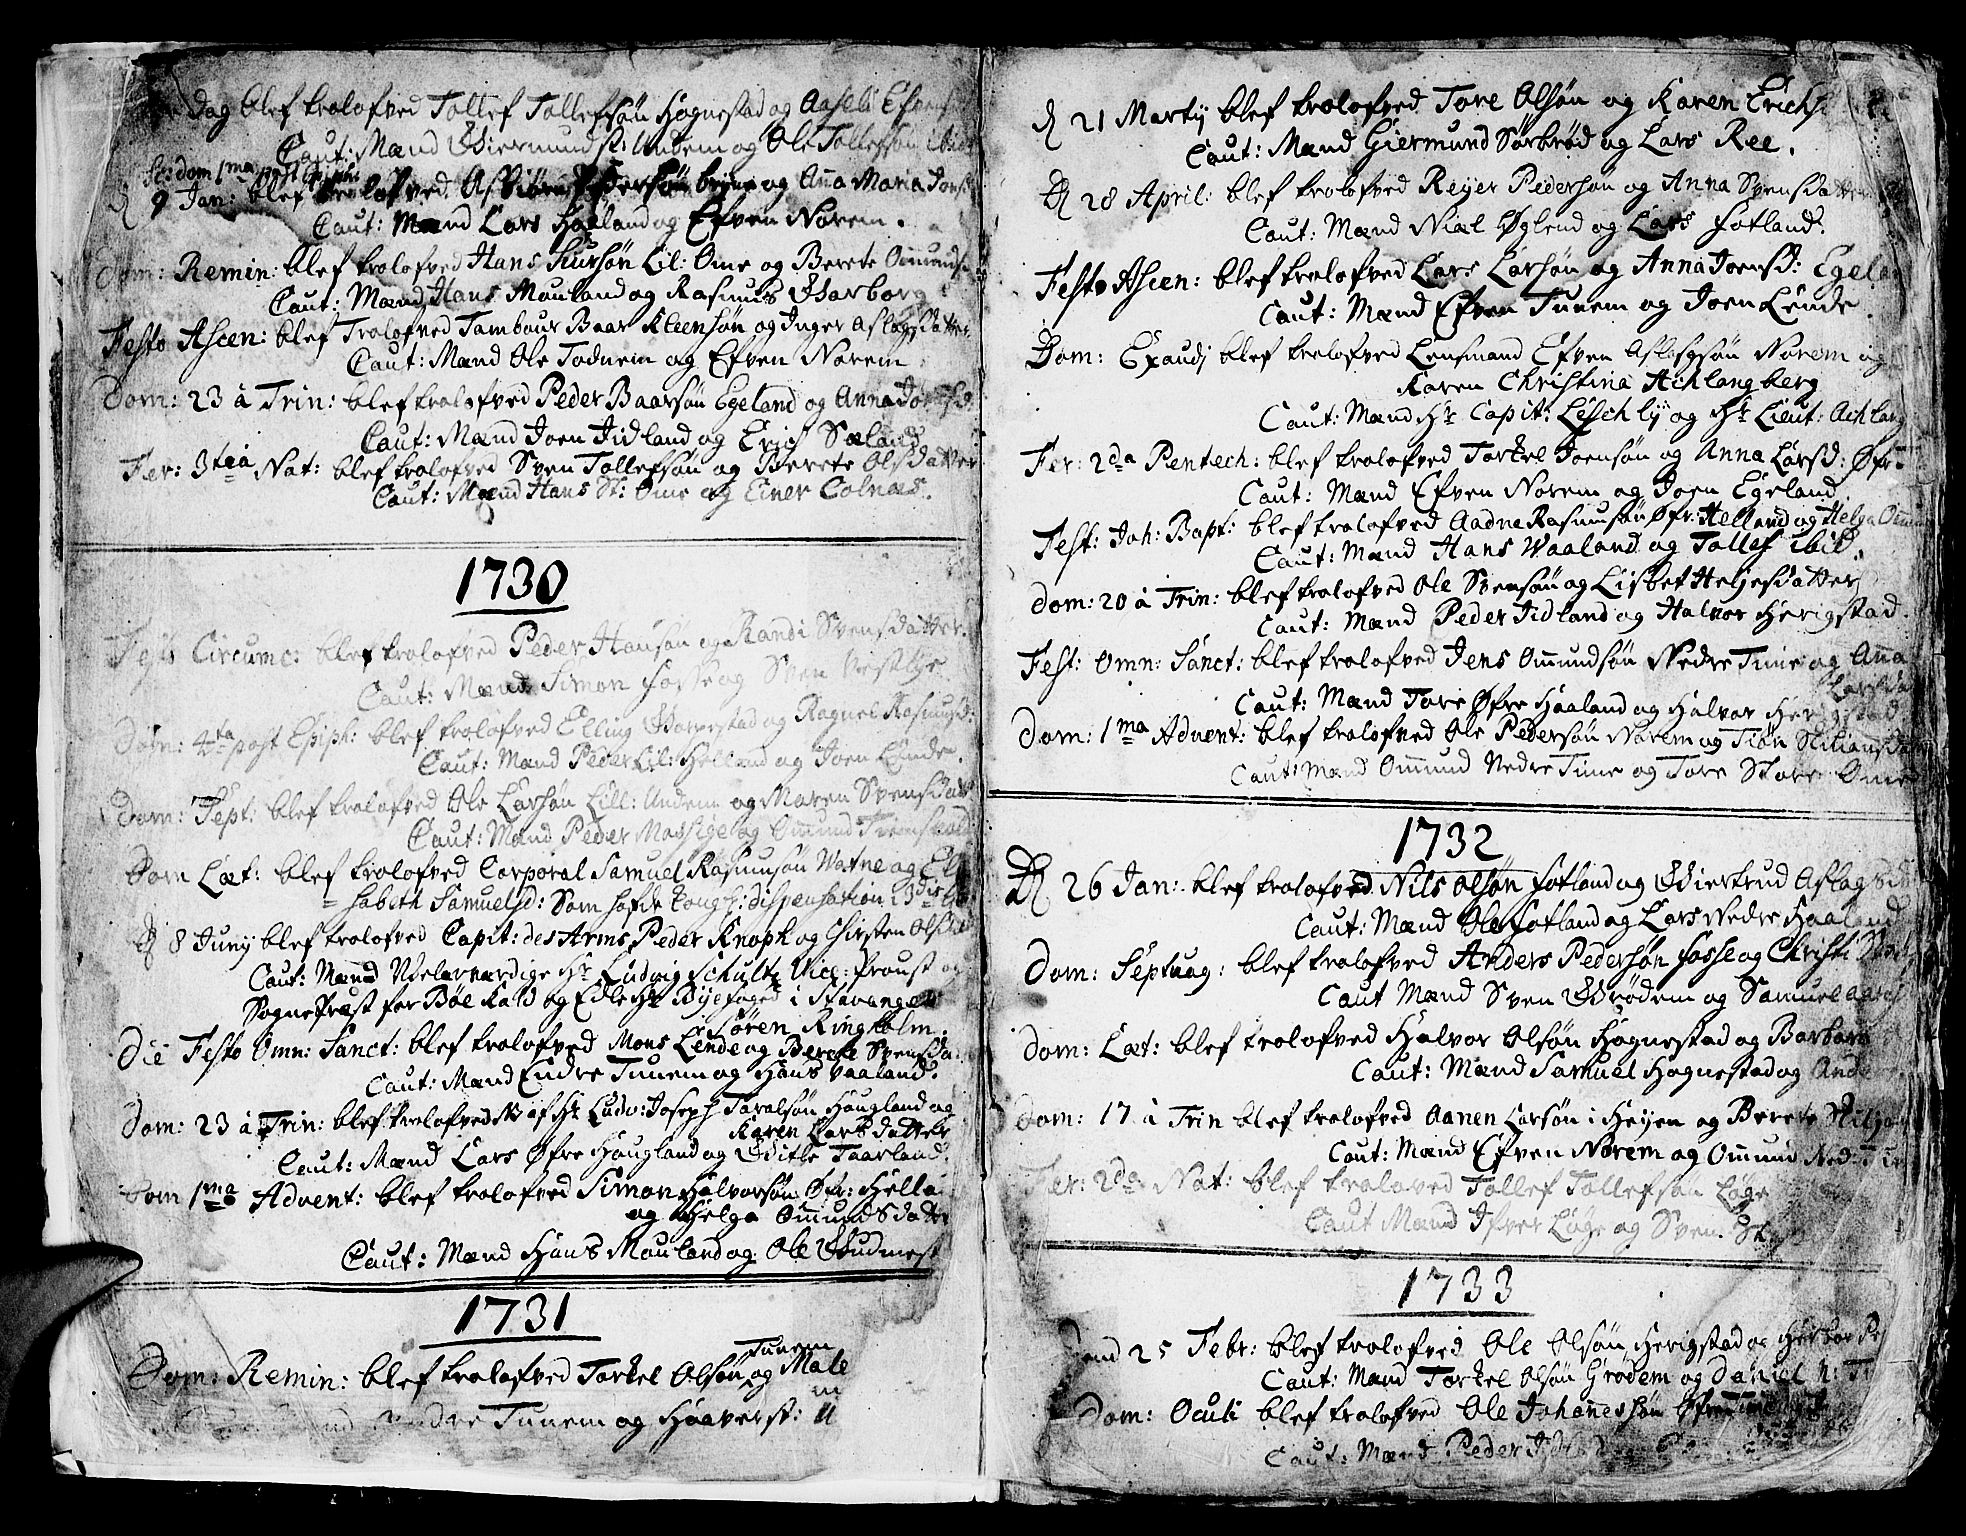 Dag blef trolofved Tollef Tollefsøn Høgnestad og Aaseli Efvens
Caut: Mænd Giermund Undem og Ole Tollefsøn ibid
dom 1ma post Epiph:
9 Jan: blef trolofved Asbiørn Pedersøn bryne og Aña Maria Jons
Caut: Mænd Lars Haaland og Efven Norem.
Dom: Remin: blef trolofved Hans Siursøn Lil: Ome og Berete Omunds
Caut: Mænd Hans Mauland og Rasmus Garborg
Festo Ascen: blef Trolofved Tambour Baar Kleensøn og Inger Aslagsdatter
Caut: Mænd Ole Todnem og Efven Norem
Dom: 23 à Trin: blef trolofved Peder Baarsøn Egeland og Anna
Caut: Mænd Joen Jidland og Erich Sæland
Fer: 3tia Nat: blef trolofved Sven Tollefsøn og Berete Olsdatter
Caut: Mænd Hans St: Ome og Einer Colnæs.
1730
Festo Circumc: blef trolofved Peder Hansøn og Randi Svensdatter.
Caut: Mænd Simon Fosse og Sven Vestlye
Dom: 4ta post Epiph: blef trolofved Elling Gavrestad og Ragnel Rasmusd:
Caut: Mænd Peder Lil: Helland og Joen Lende.
Dom: Sept: blef trolofved Ole Larsøn Lill: Undem og Maren Svensdat
Caut: Mænd Peder Mossige og Omund
Dom Læt: blef trolofved Corporal Samuel Rasmusøn Watne og El
= sabeth Samuelsd: Som hafde Kongl: dispensation
D 8 Junij blef trolofved Capit: des Arms Peder Knoph og Chirsten Ols
Caut: Mænd Velærværdige Hr Ludvig Schultz Vice: Proust og
SognePræst for Bøe Kald og Edle Hr Byefoged i Stavanger
Søren Ringholm.
Die Festo Omn: Sanct: blef trolofved Mons Lende og Berete Svensda:
Caut: Mænd Endre Tunem og Hans Vaaland.
Dom: 23 à Trin: blef trolofvede af Hr Ludv: Joseph Toralsøn Haugland og
Karen Larsdatter
Caut: Mænd Lars Øfre Haugland og Gitle Taarland.
Dom 1ma Advent: blef trolofved Simon Halvorsøn Øfr: Hella
og Helga Omundsdatter
Caut: Mænd Hans Mauland og Ole Gudmest
1731
Dom: Remin: blef trolofved Torkel Olsøn og Male
Tunem
Tunem og Haaverst:
D 21 Martij blef trolofved Tore Olsøn og Karen Erichs
Caut: Mænd Giermund Sørbrød og Lars Ree.
D 28 April: blef trolofved Reyer Pedersøn og Anna Svensdatter
Caut: Mænd Niæl Øglend og Lars Fotland.
Festo Ascen: blef trolofved Lars Larsøn og Anna Joensd: Egelan
Caut: Mænd Efven Tunem og Joen Lende.
Dom: Exaudj blef trolofved Lensmand Efven Aslagsøn Norem og
Karen Christina Achlangberg
Caut: Mænd Hr Capit: Leschly og Hr Lieut: Achlang
Fer: 2da Pentech: blef trolofved Torkel Joensøn og Anna Larsd: Øfr:
Caut: Mænd Efven Norem og Joen Egeland.
Fest: Joh: Bapt: blef trolofved Aadne Rasmusøn Øfr: Helland og Helga Omun
Caut: Mænd Hans Waaland og Tollef ibid.
Dom: 20 à Trin: blef trolofved Ole Svensøn og Lisbet Heljesdatter
Caut: Mænd Peder Jidland og Halvor Herigstad.
Fest: Omn: Sanct: blef trolofved Jens Omundsøn Nedre Time og Aña
Larsda
Caut: Mænd Tore Øfre Haaland og Halvor Herigstad
Dom: 1ma Advent: blef trolofved Ole Pedersøn Norem og Siliansda
Caut: Mænd Omund Nedre Time og Tore Store Ome
1732
D 26 Jan: blef trolofved Nils Olsøn Fotland og Giertrud Aslagsd
Caut: Mænd Ole Fotland og Lars Nedre Haaland
Dom: Septuag: blef trolofved Anders Pedersøn Fosse og Christi
Caut Mænd Sven Grødem og Samuel
Dom: Læt: blef trolofved Halvor Olsøn Høgnestad og Barbara
Caut: Mænd Samuel Hognestad og Ander
Dom: 17 à Trin blef trolofved Aanen Larsøn i Heyen og Berete
Caut: Mænd Efven Norem og Omund Ned: Tim
Fer: 2da Nat: blef trolofved Tollef Tollefsøn Løge
Caut Mænd Ifver Løge og Sven. St
1733
25 Febr: blef trolofved Ole Olsøn Herigstad og
Caut: Mænd Torkel Olsøn Grødem og Daniel N: T
Dom: Oculi blef trolofved Ole Johanessøn Øfre Time
Caut: Mænd Peder